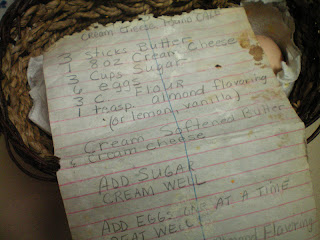 Cream Cheese Pound Cake
3 sticks Butter
1 8 oz Cream Cheese
3 Cups Sugar
6 eggs
3 C. Flour
1 teasp. almond flavoring
(or lemon, vanilla)
Cream Softened Butter
& Cream cheese
ADD SUGAR
CREAM WELL
ADD EGG: ONE AT A TIME
BEAT WELL
Almond Flavoring